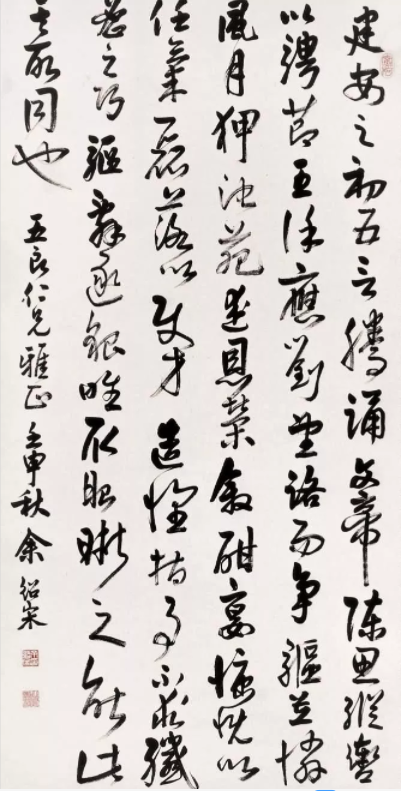 建安之初五言騰踊文帝陳思縱轡
以騁節王徐應劉望路而爭驅並憐
風月狎池苑述恩榮敘酣宴慷慨以
任氣磊落以使才造懷指事不求纖
密之巧驅辭逐貌唯取昭晰之能此
其所同也 五良仁兄雅正 壬申秋 余紹宋